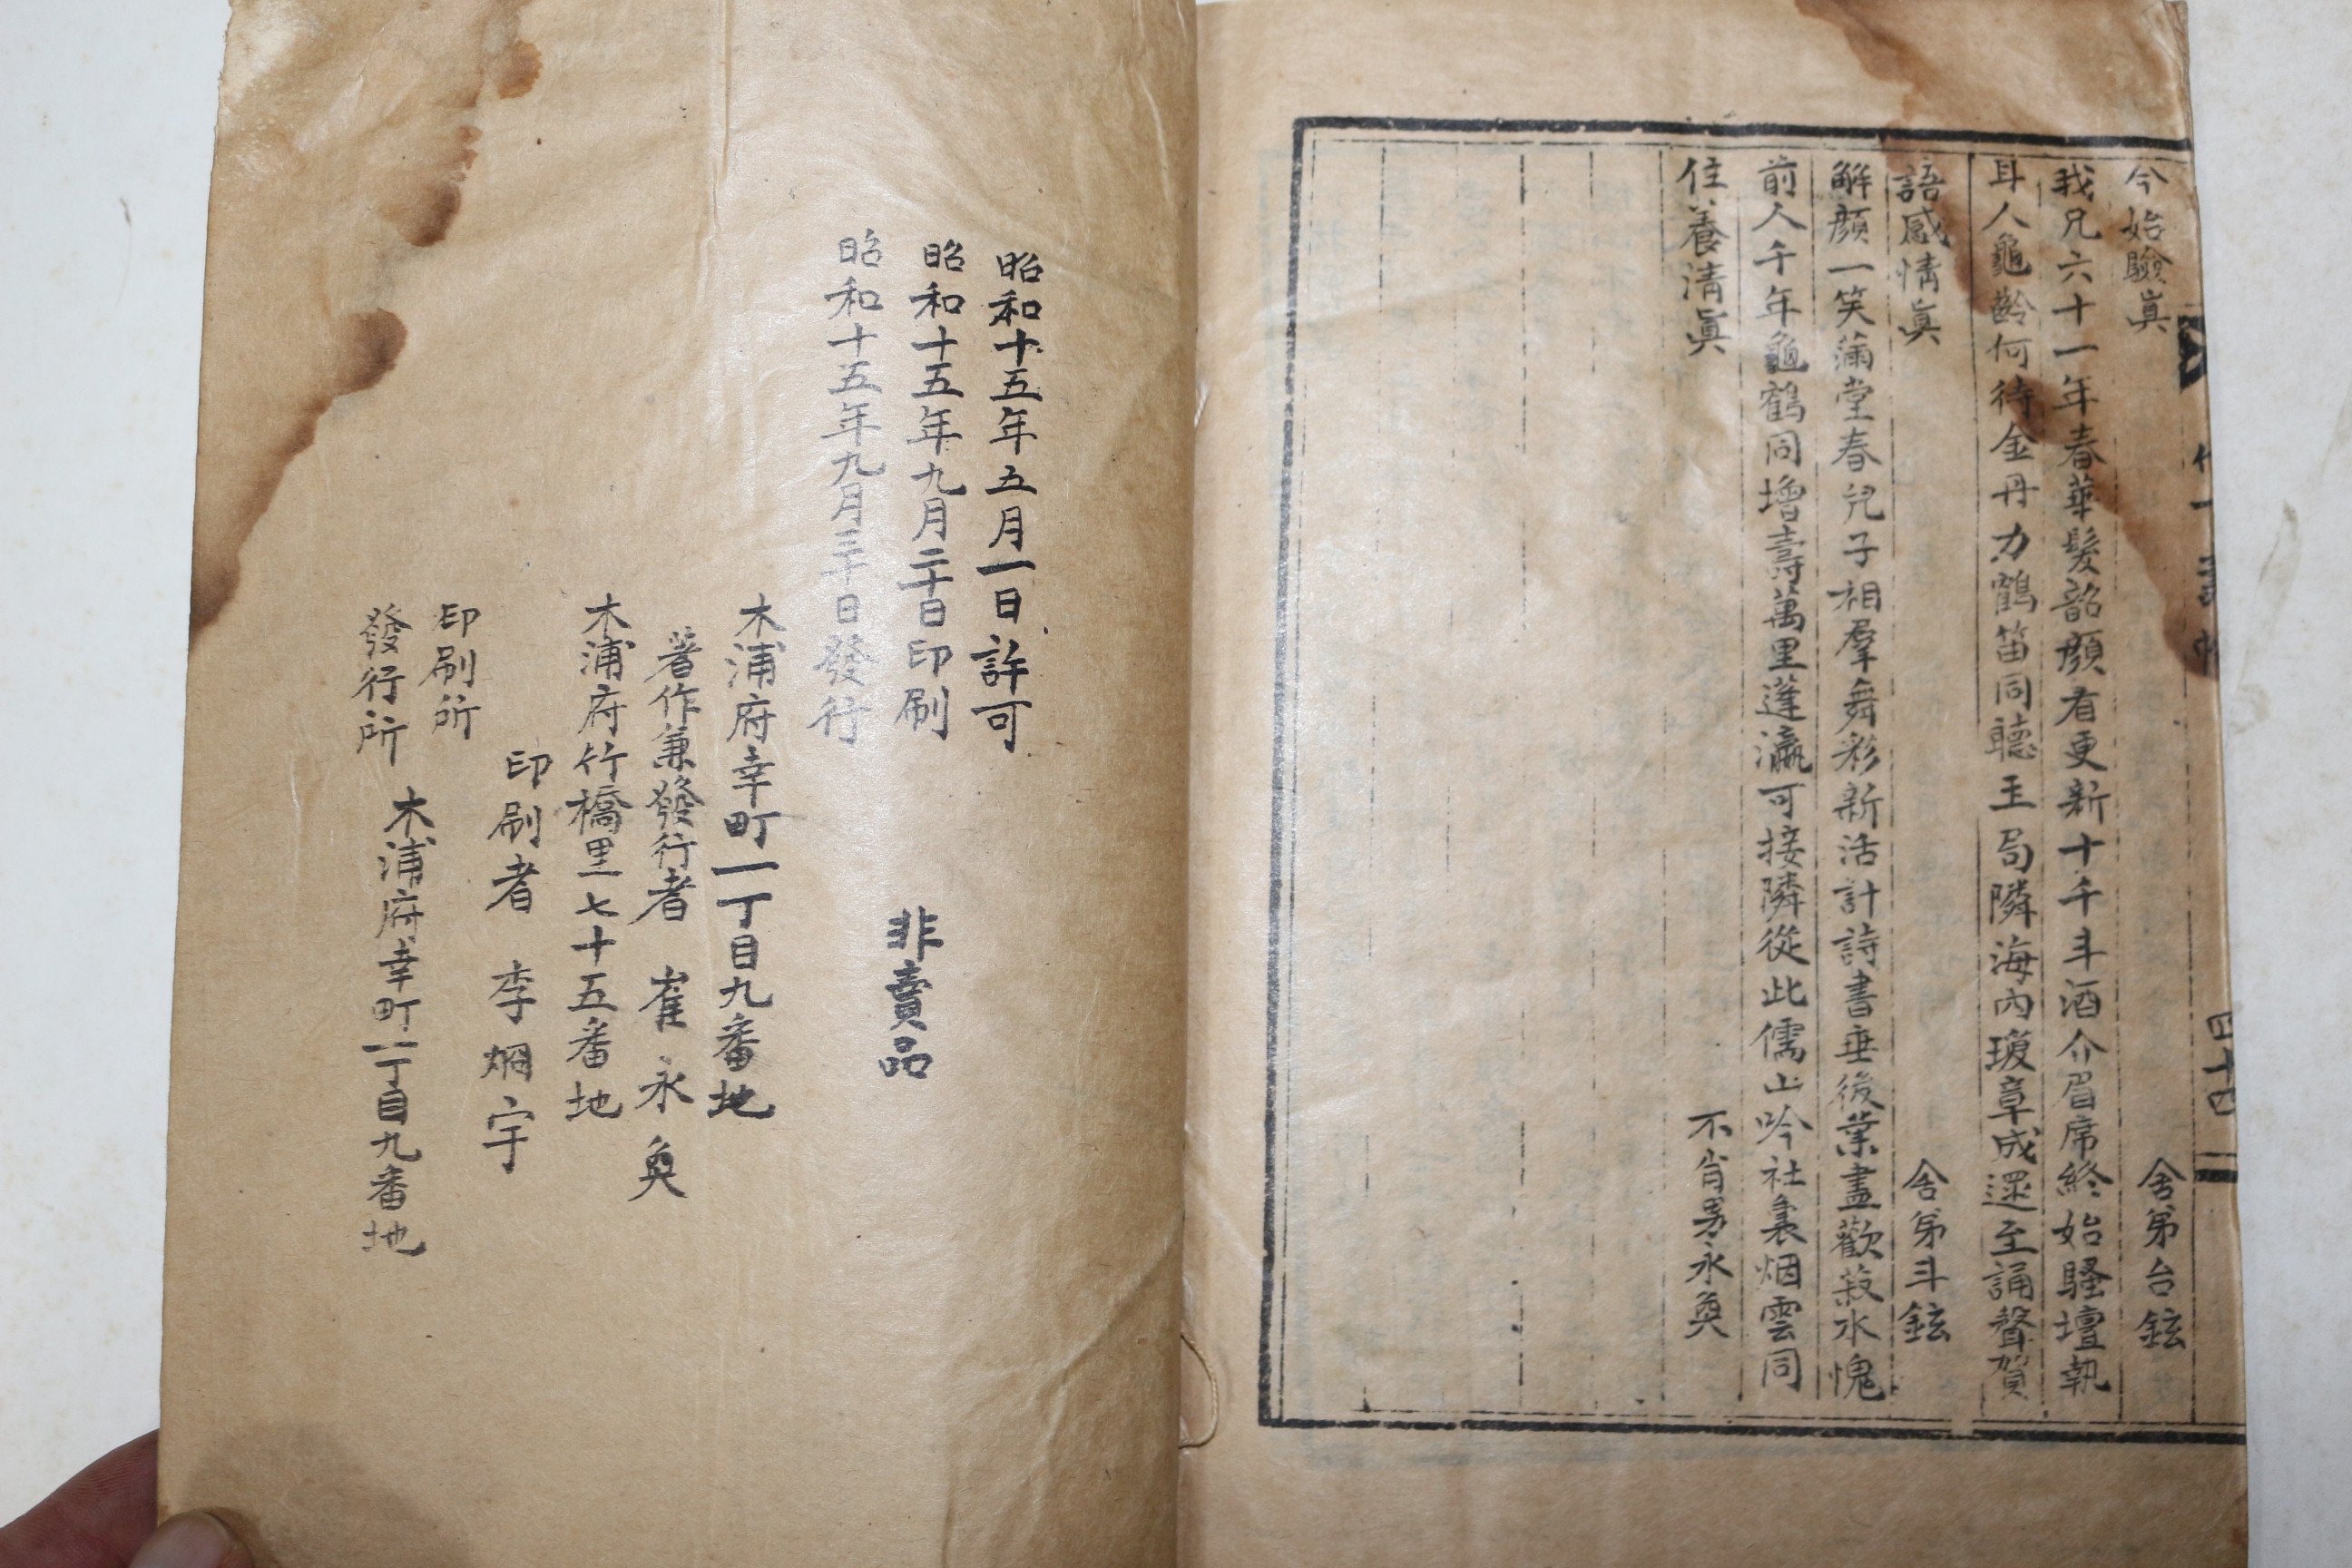 今始驗眞
舍弟台鉉
我兄六十一年春華髮韶顔看更新十千斗酒介眉席終始騷壇執
耳人龜齡何待金丹力鶴笛同聽玉局隣海內瓊章成還至誦聲賀
語感情眞
舍弟斗鉉
解顔一笑滿堂春兒子相羣舞彩新活計詩書垂後業盡歡菽水愧
前人千年龜鶴同增壽萬里蓬瀛可接隣從此儒山吟社裏烟雲同
住養淸眞
不肖男永奐
四十四
昭和十五年五月一日許可
昭和十五年九月二十日印刷
昭和十五年九月三十日發行
非賣品
木浦府幸町一丁目九番地
著作兼發行者 崔永奐
木浦府竹橋里七十五番地
印刷者 李炯宇
印刷所
發行所
木浦府幸町一丁目九番地